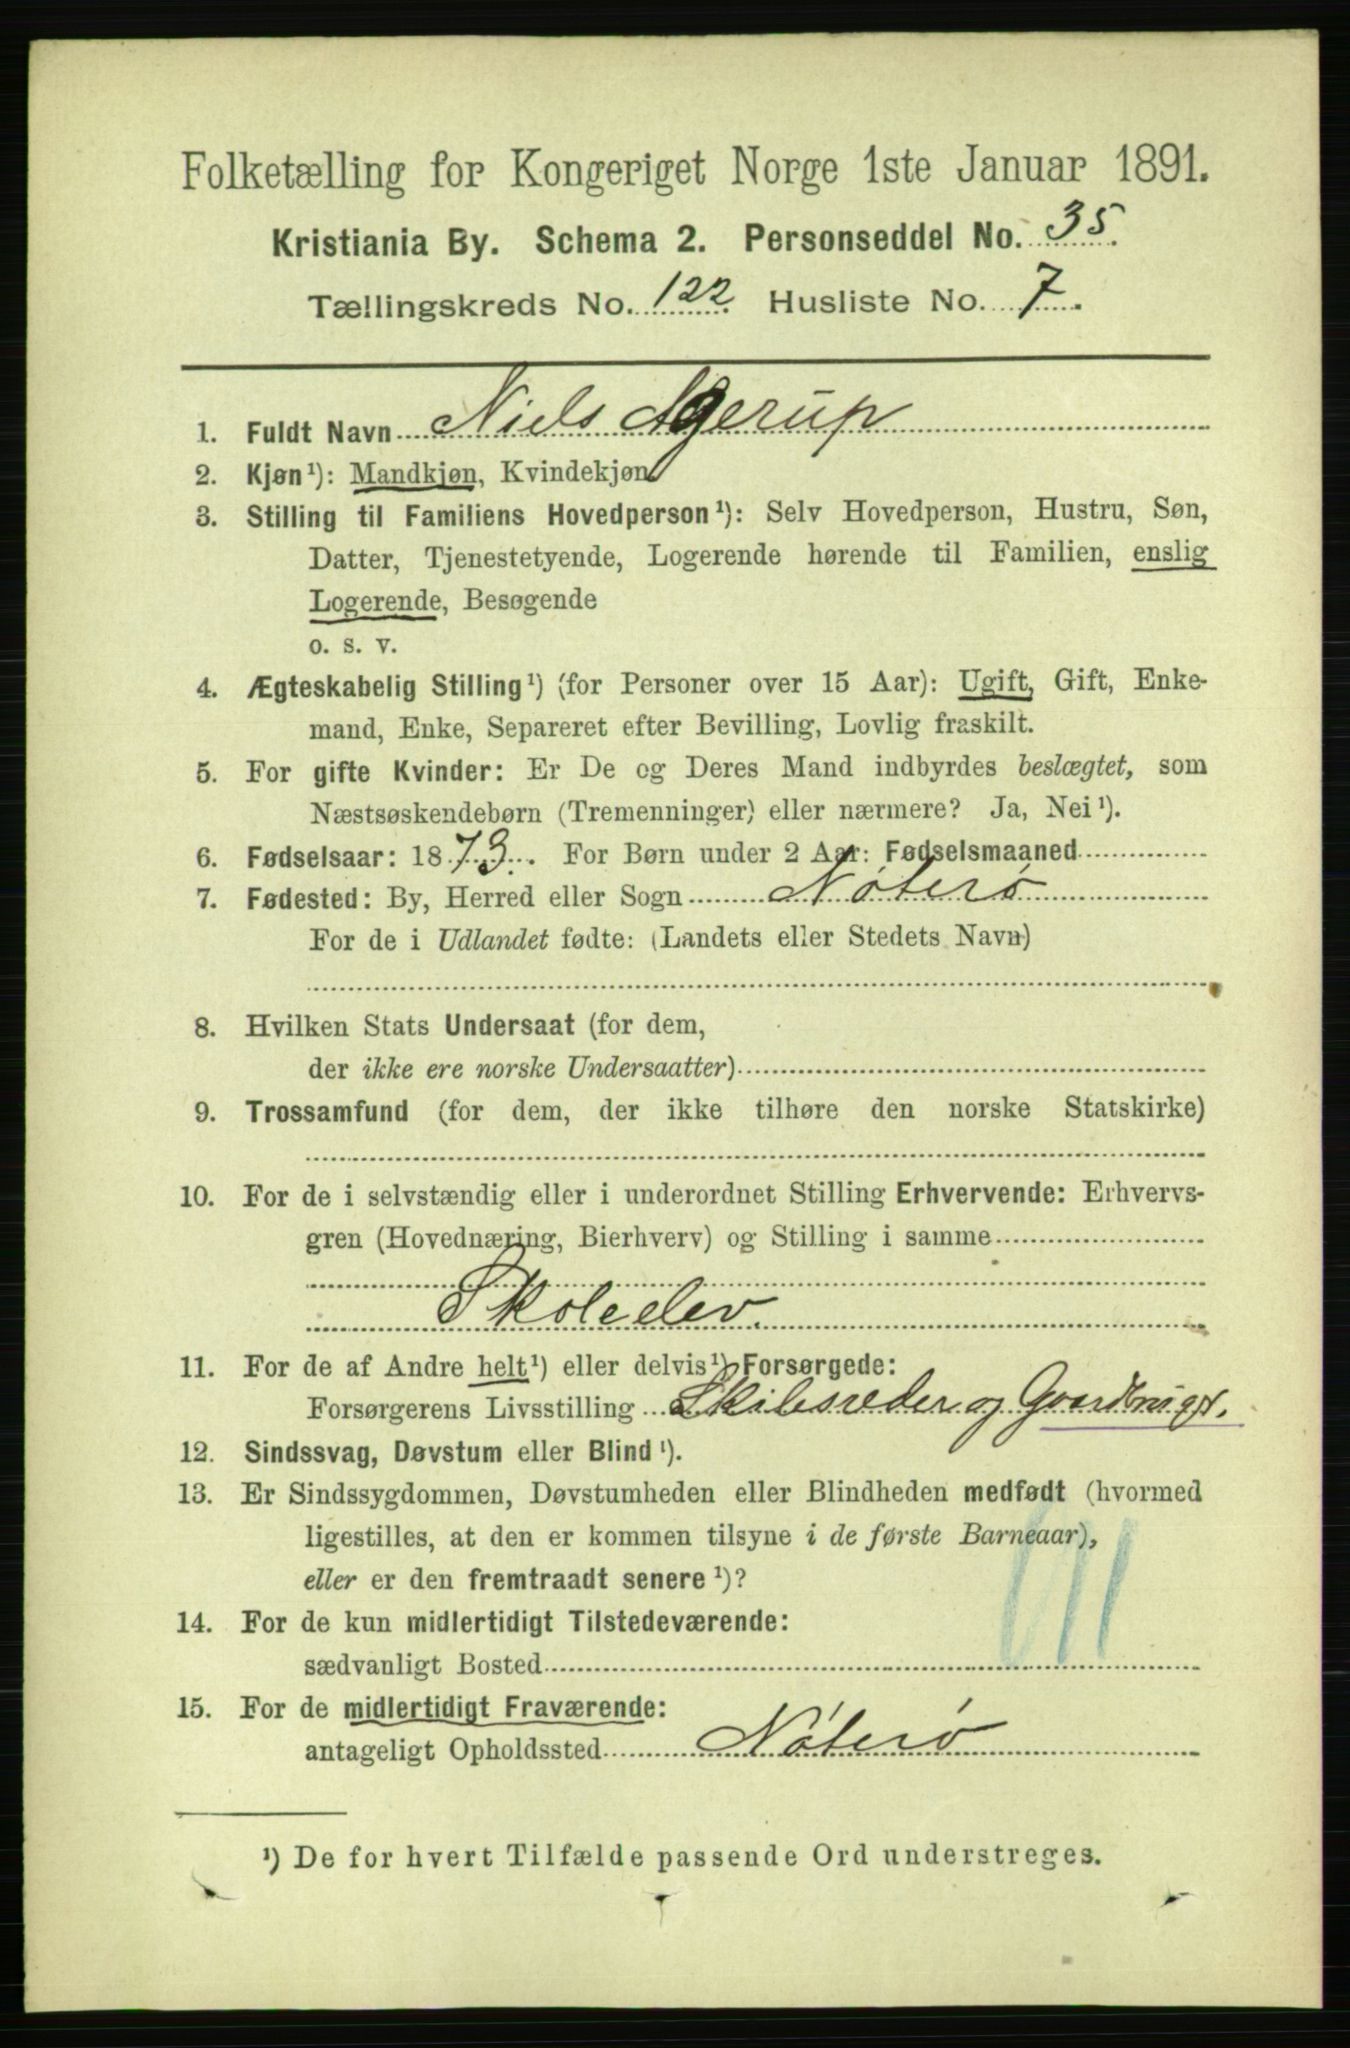 Folketælling for Kongeriget Norge 1ste Januar 1891.
Kristiania By. Schema 2. Personseddel No. 35.
Tællingskreds No. 122. Husliste No. 7.
1. Fuldt Navn Niels Agerup
2. Kjøn¹): Mandkjøn, Kvindekjøn
3. Stilling til Familiens Hovedperson¹): Selv Hovedperson, Hustru, Søn,
Datter, Tjenestetyende, Logerende hørende til Familien, enslig
Logerende, Besøgende
o. s. v.
4. Ægteskabelig Stilling¹) (for Personer over 15 Aar): Ugift, Gift, Enke-
mand, Enke, Separeret efter Bevilling, Lovlig fraskilt.
5. For gifte Kvinder: Er De og Deres Mand indbyrdes beslægtet, som
Næstsøskendebørn (Tremenninger) eller nærmere? Ja, Nei¹).
6. Fødselsaar: 1873. For Børn under 2 Aar: Fødselsmaaned
7. Fødested: By, Herred eller Sogn Nøterø
For de i Udlandet fødte: (Landets eller Stedets Navn)
8. Hvilken Stats Undersaat (for dem,
der ikke ere norske Undersaatter)
9. Trossamfund (for dem, der ikke tilhøre den norske Statskirke)
10. For de i selvstændig eller i underordnet Stilling Erhvervende: Erhvervs-
gren (Hovednæring, Bierhverv) og Stilling i samme
Skoleelev.
11. For de af Andre helt¹) eller delvis¹) Forsørgede:
Forsørgerens Livsstilling Skibsreder og Gaardbruger.
12. Sindssvag, Døvstum eller Blind¹).
13. Er Sindssygdommen, Døvstumheden eller Blindheden medfødt (hvormed
ligestilles, at den er kommen tilsyne i de første Barneaar),
eller er den fremtraadt senere¹)?
14. For de kun midlertidigt Tilstedeværende:
sædvanligt Bosted
15. For de midlertidigt Fraværende:
antageligt Opholdssted Nøterø
¹) De for hvert Tilfælde passende Ord understreges.